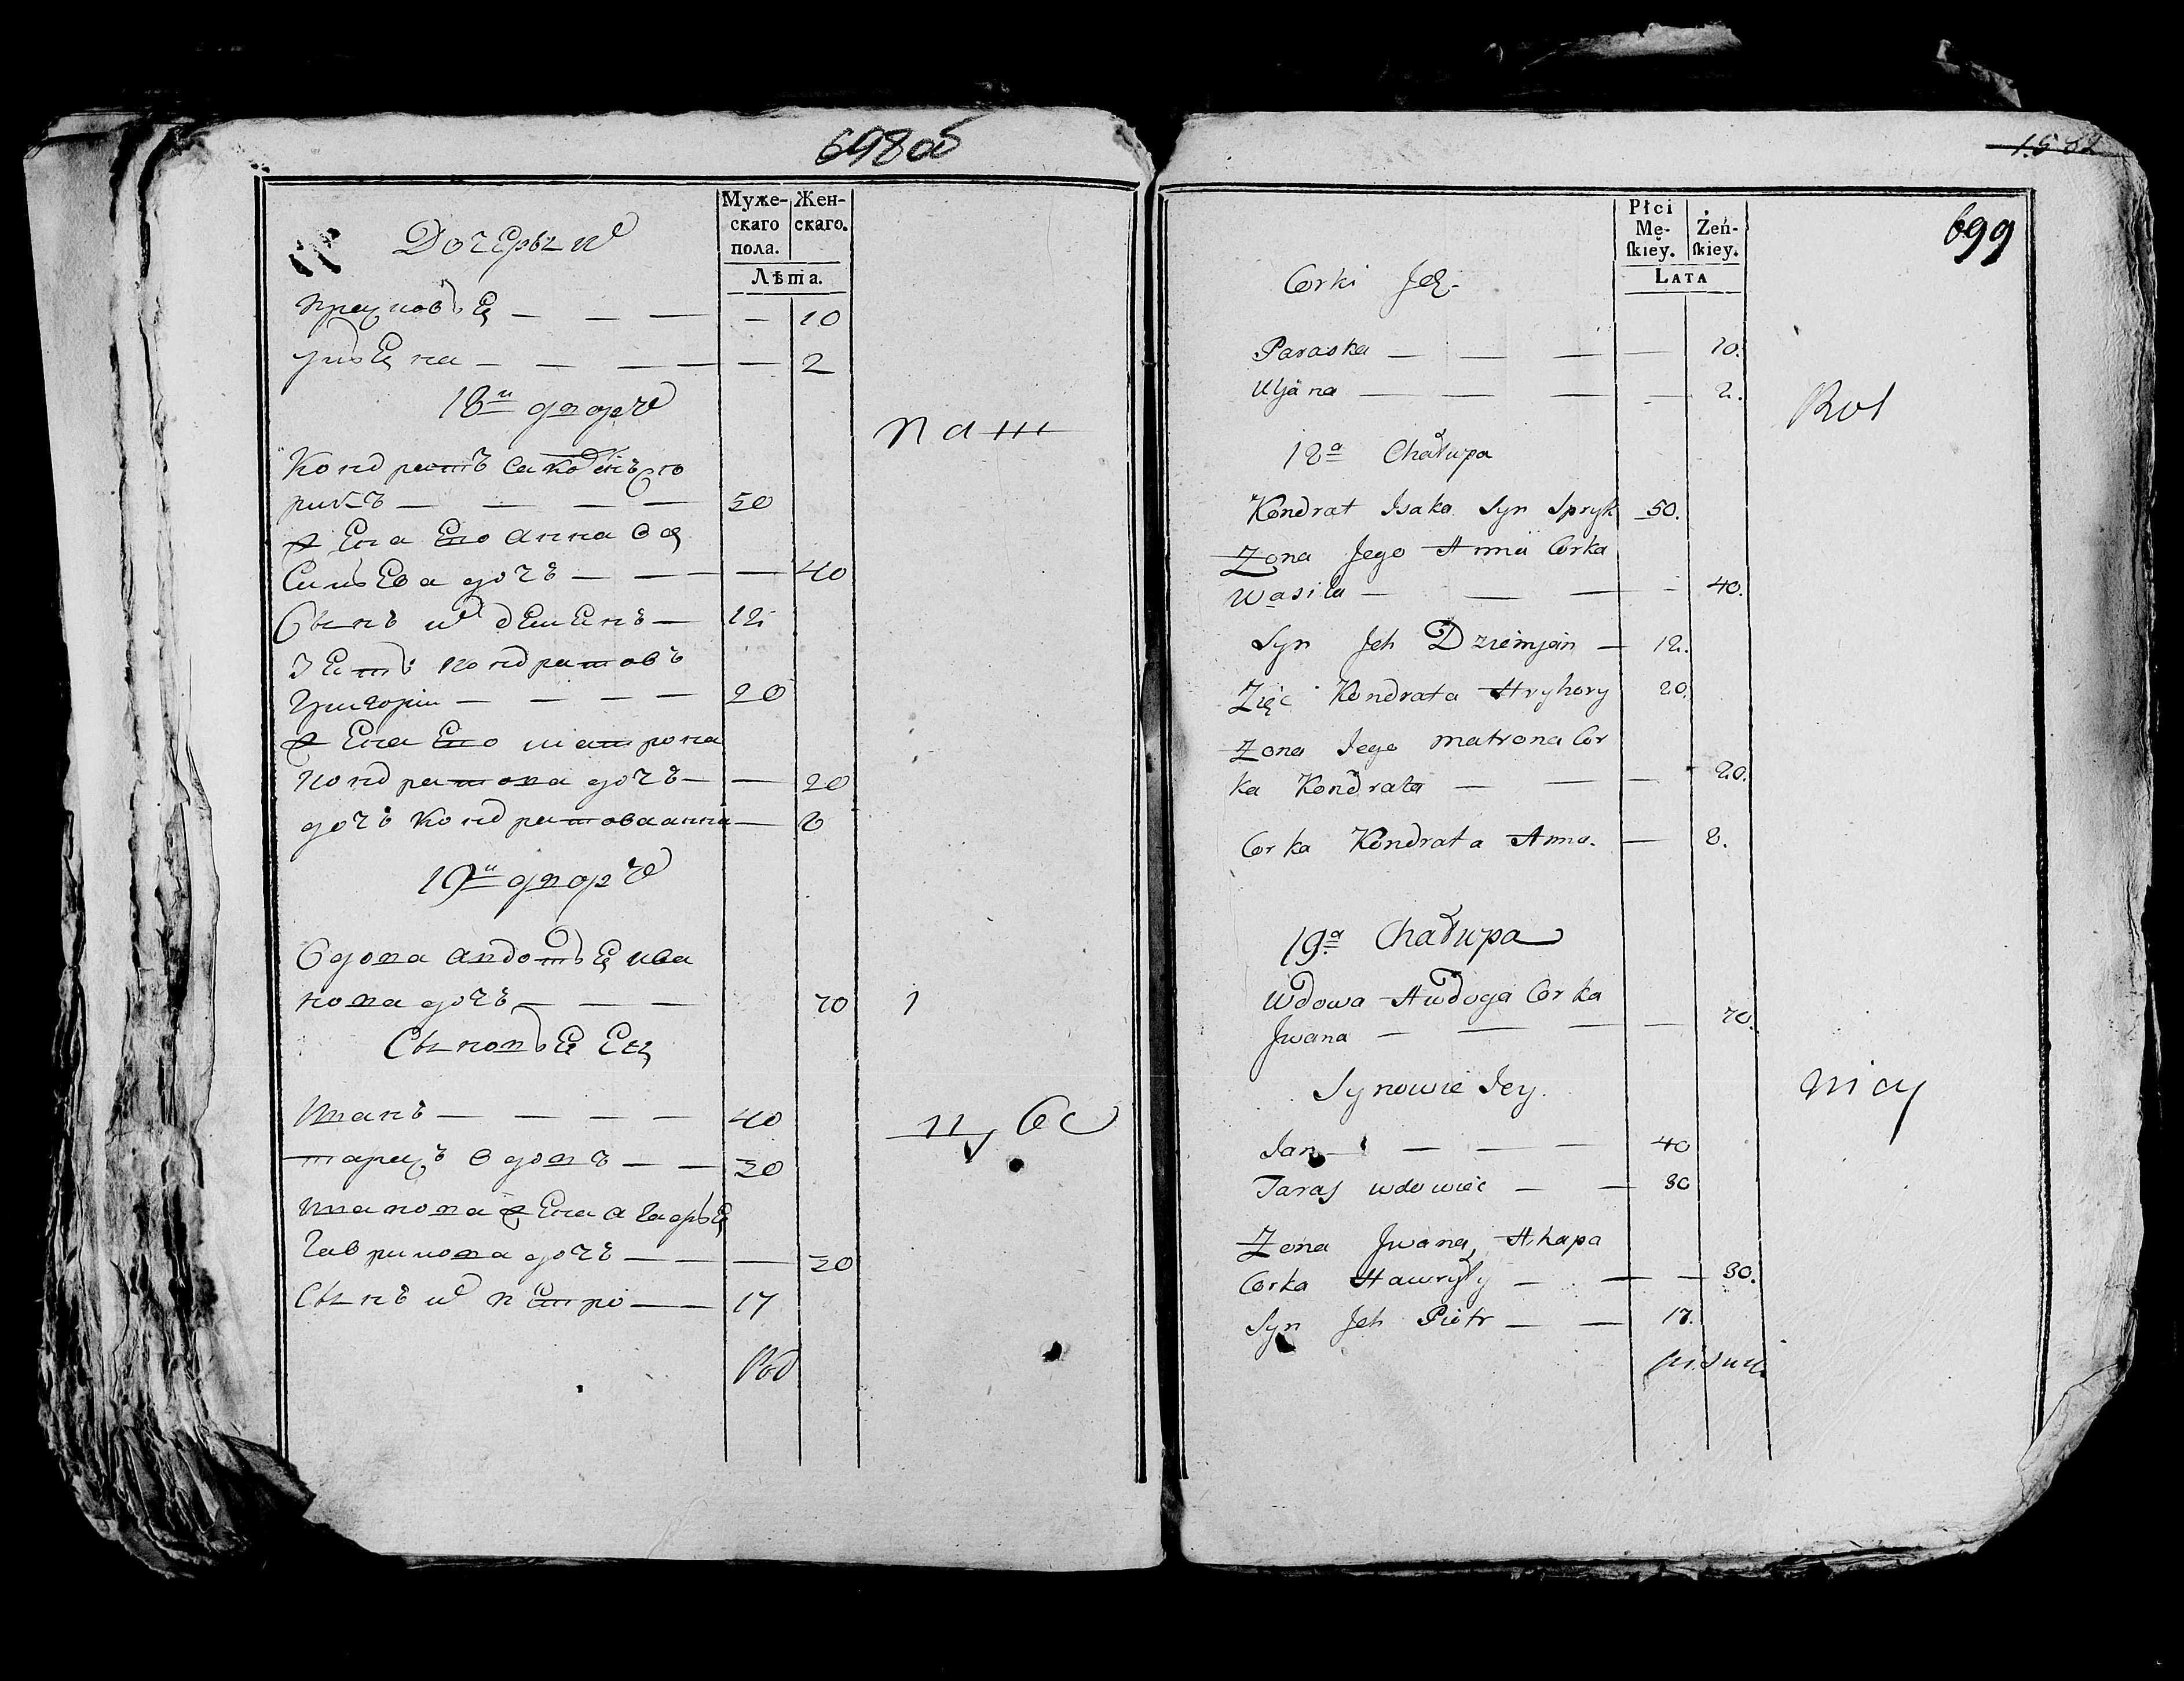 698об
Муже- Жен-
скаго скаго.
пола.
Лѣта.
Дочеры их
— — — — 10
— — — — 2
18й дворъ
Кондратъ
— — — — 50
Жена Его анна Ва
сильева дочъ — — — 40
Сынъ их демьенъ — 12
Зеть кондратовъ
Григорій — — — — 20
Жена Его матрона
кондратова дочъ — — 20
дочъ Кондратова анна — 8
19й дворъ
Вдова авдотья ива
нова дочъ — — — 70 1
Сыновья Ея
Иванъ — — — — 40
тарасъ вдовъ — — 30
иванова жена агафья
Гаврилова дочъ — — — 30
Сынъ их петро — — 17
1582
699
Płci
Mę- Żeń-
ſkiey. ſkiey.
LATA
Corki Jch
Paraska — — — — 10.
Uljana — — — — 2.
18a Chałupa
Kondrat Isaka Syn Spryk 50.
Zona Jego Anna Corka
Wasila — — — - 40.
Syn Jch Dziemjan — 12.
Zięć Kondrata Hryhory 20.
Zona Jego Matrona Cor
ka Kondrata — — — 20.
Corka Kondrata Anna. — 8.
19a Chałupa
Wdowa Awdoga Corka
Jwana — — — — 70.
Synowie Jey.
Jan — — — — 40
Taras wdowiec — — 30
Zona Jwana, Ahapa
Corka Hawryły — — — 30.
Syn Jch Piotr — — 17.